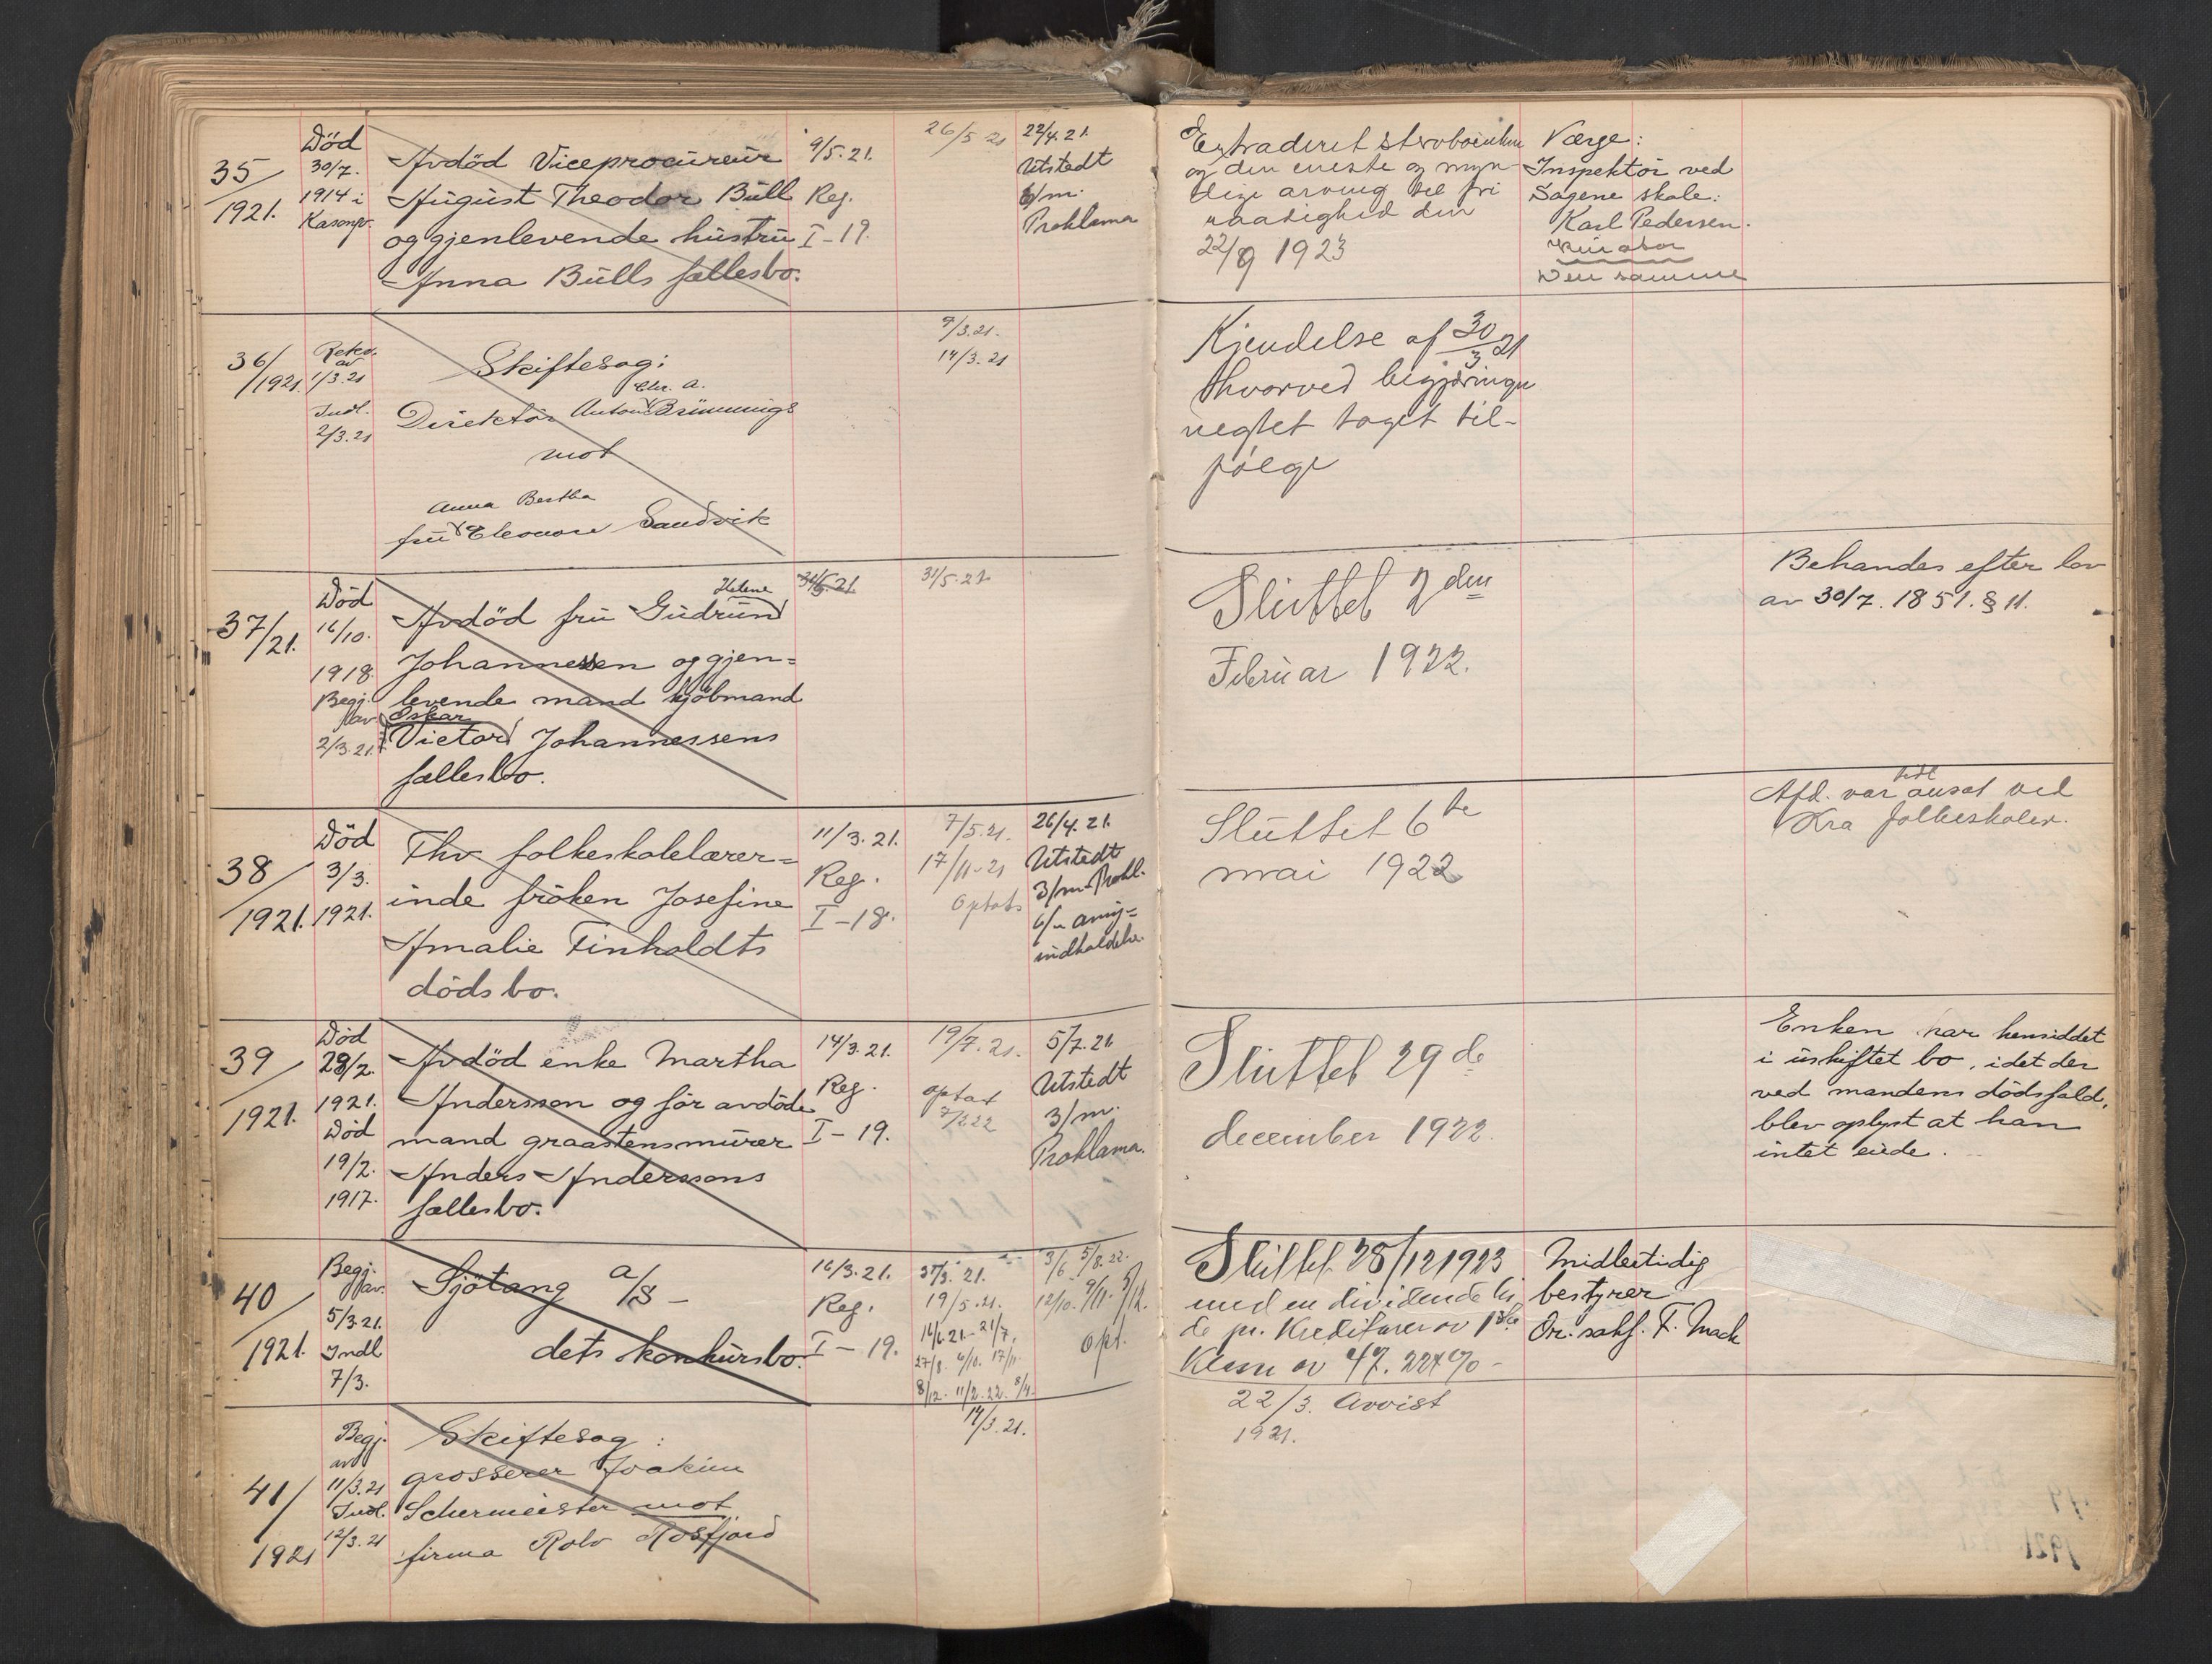 35/1921.
Död
30/7.
1914 i
Kasongo.
Avdöd Viceprocureur
August Theodor Bull
og gjenlevende hustru
Anna Bulls fællesbo.
9/5.21.
Reg.
I-19.
26/5 21
22/4.21.
Utstedt
6/m.
Proklama
Extraderet
og den eneste og myn-
dige arving til fri
raadighed den
22/9 1923
Værge:
Inspektör ved
Sagene skole:
Karl Pedersen.
Kurator
Den samme
36/1921.
Rekv.
av
1/3.21
Indl.
2/3.21
Skiftesag:
Chr. A.
Direktör Anton Brünnings
mot
Anna Bertha
fru Eleonore Sandvik
7/3.21.
14/3.21
Kjendelse af 30/3 21
hvorved begjæringen
negtet taget til-
følge
37/21.
Död
16/10.
1918.
Begj.
av
2/3.21.
Helene
Avdöd fru Gudrun
Johannessen og gjen=
levende mand kjöbmand
Oskar
Victor Johannessens
fællesbo.
31/5.21
31/5.21
Sluttet 2den
Februar 1922.
Behandes efter lov
av 30/7.1851.§ 11.
38/1921.
Död
3/3.
1921.
Fhv folkeskolelærer=
inde fröken Josefine
Amalie Finholdts
dödsbo.
11/3.21.
Reg.
I-18.
7/5.21.
17/11-21
Optats
26/4.21.
Utstedt
3/m-Prokl.
6/m arving=
indkaldelse.
Sluttet 6te
mai 1922
tidl
Afd. var ansat ved
Kra folkeskoler.
39/1921.
Död
28/2.
1921.
Död
19/2.
1917.
Avdöd enke Martha
Andersson og för avdöde
mand graastensmurer
Anders Anderssons
fællesbo.
14/3.21.
Reg.
I-19.
19/7.21.
optat
7/2 22
5/7.21
Utstedt
3/m.
Proklama.
Sluttet 29de
december 1922.
Enken har hensiddet
i uskiftet bo, idet der
ved mandens dödsfald,
blev oplyst at han
intet eiede.
40/1921.
Begj.
av.
5/3.21.
Indl
7/3.
Sjötang a/s-
dets konkursbo.
16/3.21.
Reg.
I-19.
19/5.21.
16/6.21-21/7.
27/8. 6/10. 17/11.
8/12. 11/2.22. 8/4.
3/6. 5/8.22.
12/10. 9/11.
Opt.
Sluttet 28/12 1923
med en dividende til
de pr. Kreditorer av
Klasse av 47.224%-
Midlertidig
bestyrer
Or. sakf. F. Mack
41/1921
Begj.
av
11/3.21
Indl.
12/3.21
Skiftesag:
grosserer Joakim
Schermeister mot
firma Rolv Rosfjord
14/3.21.
22/3. Avvist
1921.